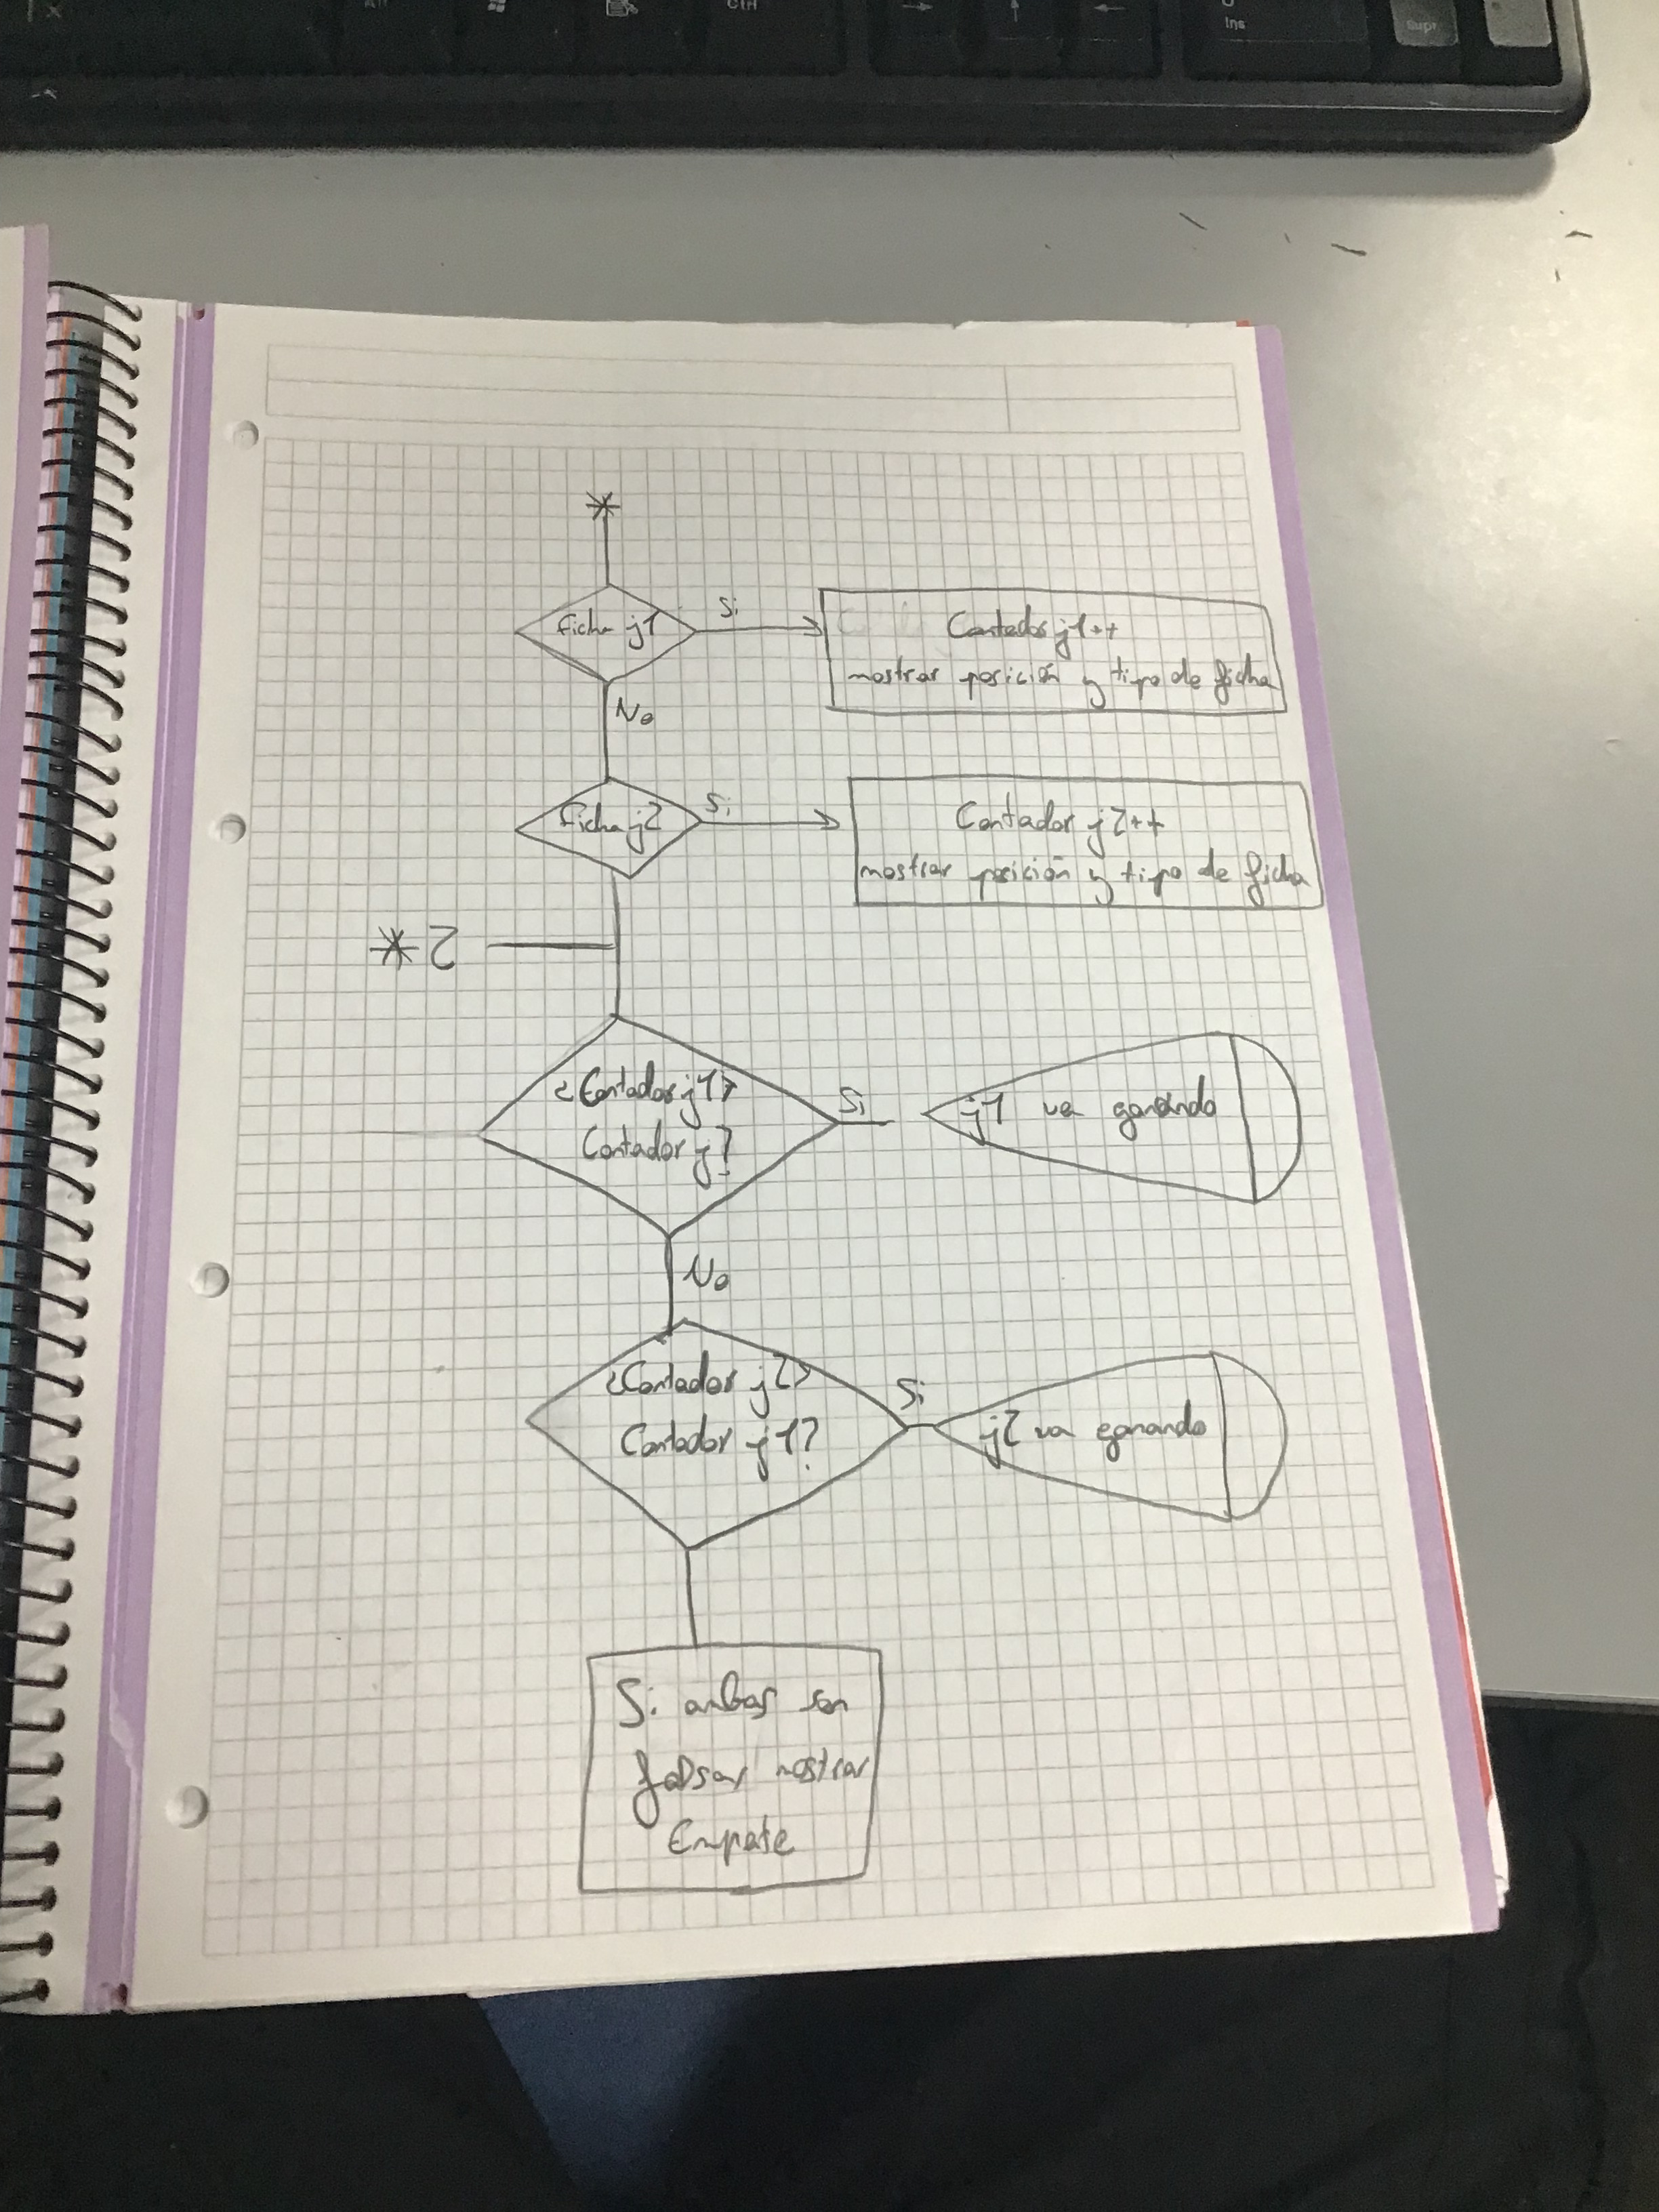 Ctrl
Ins
Supr
*
ficha j1
Si
Contador j1++
mostrar posición y tipo de ficha
No
ficha j2
Si
Contador j2++
mostrar posición y tipo de ficha
*2
¿Contador j1>
Contador j?
Si
j1 va ganando
No
¿Contador j2>
Contador j1?
Si
j2 va ganando
Si ambas son
falsas mostrar
Empate